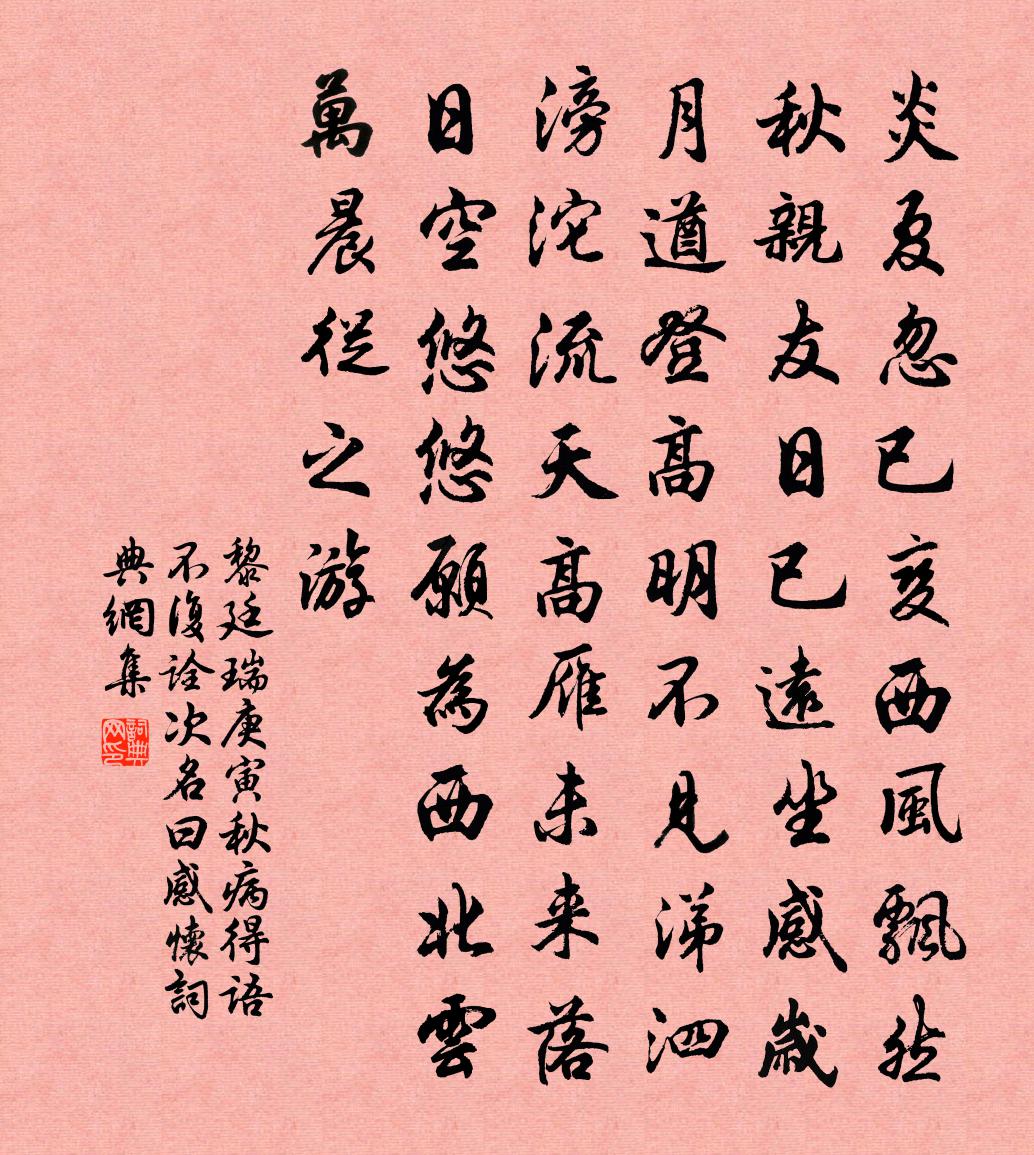 炎夏忽已变西風飄然
秋親友日已遠坐感歲
月遒登高明不見涕泗
滂沱流天高雁未来落
日空悠悠願為西北雲
萬晨從之游
黎廷瑞庚寅秋病得语
不復诠次名曰感懷詞
典網集
詞典网印